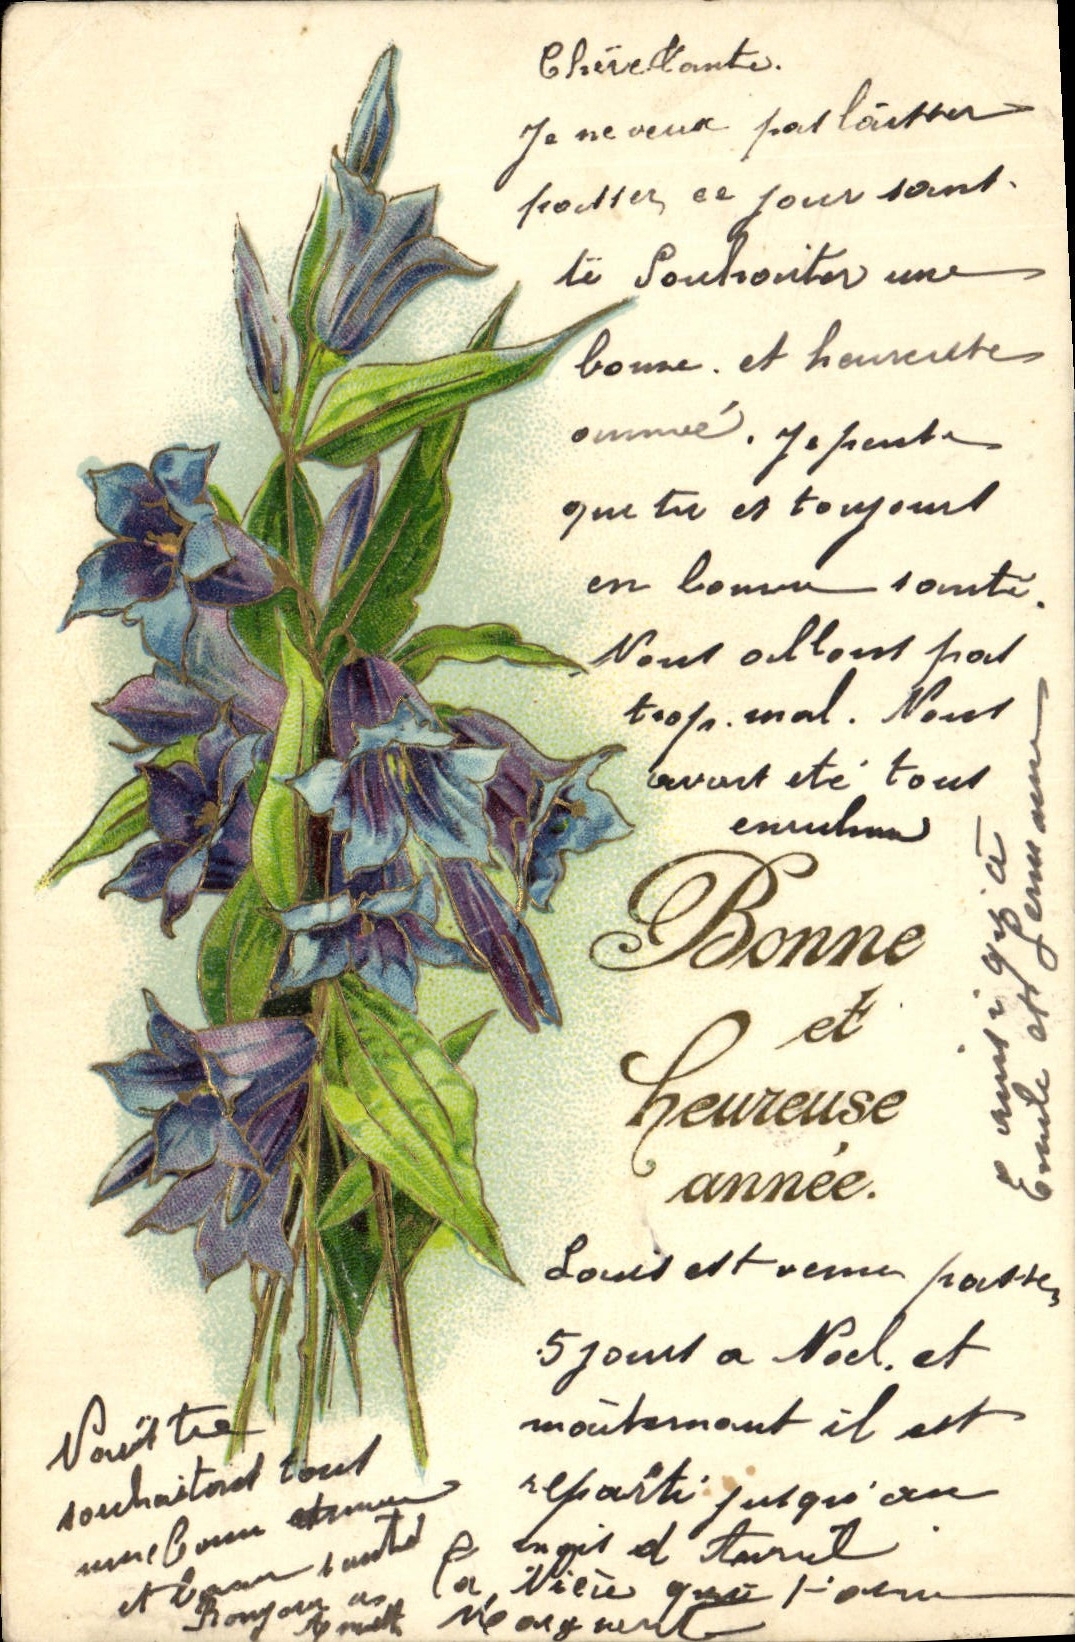 Chère tante.
Je ne veux pas laisser
passer ce jour sans
te souhaiter une
bonne. et heureuse
anné. Je pense
que tu es toujours
en bonne santé.
Nous allons pas
trop. mal. Nous
avons eté tous
enruhmé
Bonne
et
heureuse
année.
ainsi qu'à
Emile et Germaine
Louis est venu passer
5 jours a Noel. et
maintenant il est
reparti jusqu'au
mois d Avril
Nous te
souhaitons tous
une bonne année
et bonne santé
Bonjour
La Nièce que t'aime
Marguerite